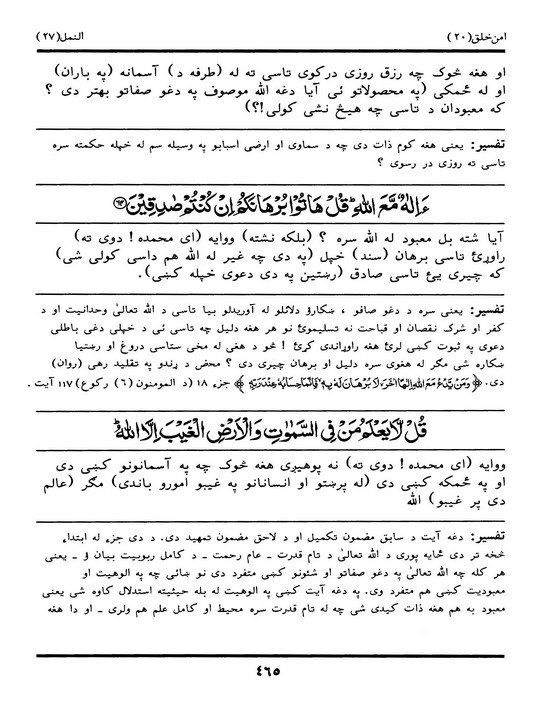 امن خلق (۲۰)
النمل (۲۷)
او هغه څوک چه رزق روزی درکوی تاسی ته له (طرفه د) آسمانه (په باران)
او له ځمکی (په محصولاتو ئی آیا دغه الله موصوف په دغو صفاتو بهتر دی ؟
که معبودان د تاسی چه هیڅ نشی کولی!؟)
تفسیر: یعنی هغه کوم ذات دی چه د سماوی او ارضی اسبابو په وسیله سم له خپله حکمته سره
تاسی ته روزی در رسوی ؟
ءَاِلٰهٌ مَّعَ اللهِ قُلْ هَاتُوْا بُرْهَانَكُمْ اِنْ كُنْتُمْ صٰدِقِیْنَ
آیا شته بل معبود له الله سره ؟ (بلکه نشته) ووایه (ای محمده! دوی ته)
راوړئ تاسی برهان (سند) خپل (په دی چه غیر له الله هم داسی کولی شی)
که چیری یئ تاسی صادق (رښتین په دی دعوی خپله کښی).
تفسیر: یعنی سره د دغو صافو ، ښکارؤ دلائلو له آوریدلو بیا تاسی د الله تعالیٰ وحدانیت او د
کفر او شرک نقصان او قباحت نه تسلیموئ نو هر هغه دلیل چه تاسی ئی د خپلی دغی باطلی
دعوی په ثبوت کښی لرئ هغه راوړاندی کړئ ! څو د هغی له مخی ستاسی دروغ او رښتیا
ښکاره شی مگر له هغوی سره دلیل او برهان چیری دی ؟ محض د ړندو په تقلید رهی (روان)
دی. ﴿ وَمَنْ يَّدْعُ مَعَ اللهِ اِلٰهًا اٰخَرَ لَا بُرْهَانَ لَهٗ بِهٖ فَاِنَّمَا حِسَابُهٗ عِنْدَ رَبِّهٖ ﴾ جزء ۱۸ (د المومنون (۶) رکوع) ۱۱۷ آیت .
قُلْ لَّا یَعْلَمُ مَنْ فِی السَّمٰوٰتِ وَالْاَرْضِ الْغَیْبَ اِلَّا اللهُ
ووایه (ای محمده! دوی ته) نه پوهیږی هغه څوک چه په آسمانونو کښی دی
او په ځمکه کښی دی (له پرښتو او انسانانو په غیبو امورو باندی) مگر (عالم
دی پر غیبو) الله
تفسیر: دغه آیت د سابق مضمون تکمیل او د لاحق مضمون تمهید دی. د دی جزء له ابتداء
څخه تر دی ځایه پوری د الله تعالیٰ د تام قدرت ـ عام رحمت ـ د کامل ربوبیت بیان ؤ ـ یعنی
هر کله چه الله تعالیٰ په دغو صفاتو او شئونو کښی متفرد دی نو ښائی چه په الوهیت او
معبودیت کښی هم متفرد وی. په دغه آیت کښی په الوهیت له بله حیثیته استدلال کاوه شی یعنی
معبود به هم هغه ذات کیدی شی چه له تام قدرت سره محیط او کامل علم هم ولری ـ او دا هغه
۴۶۵